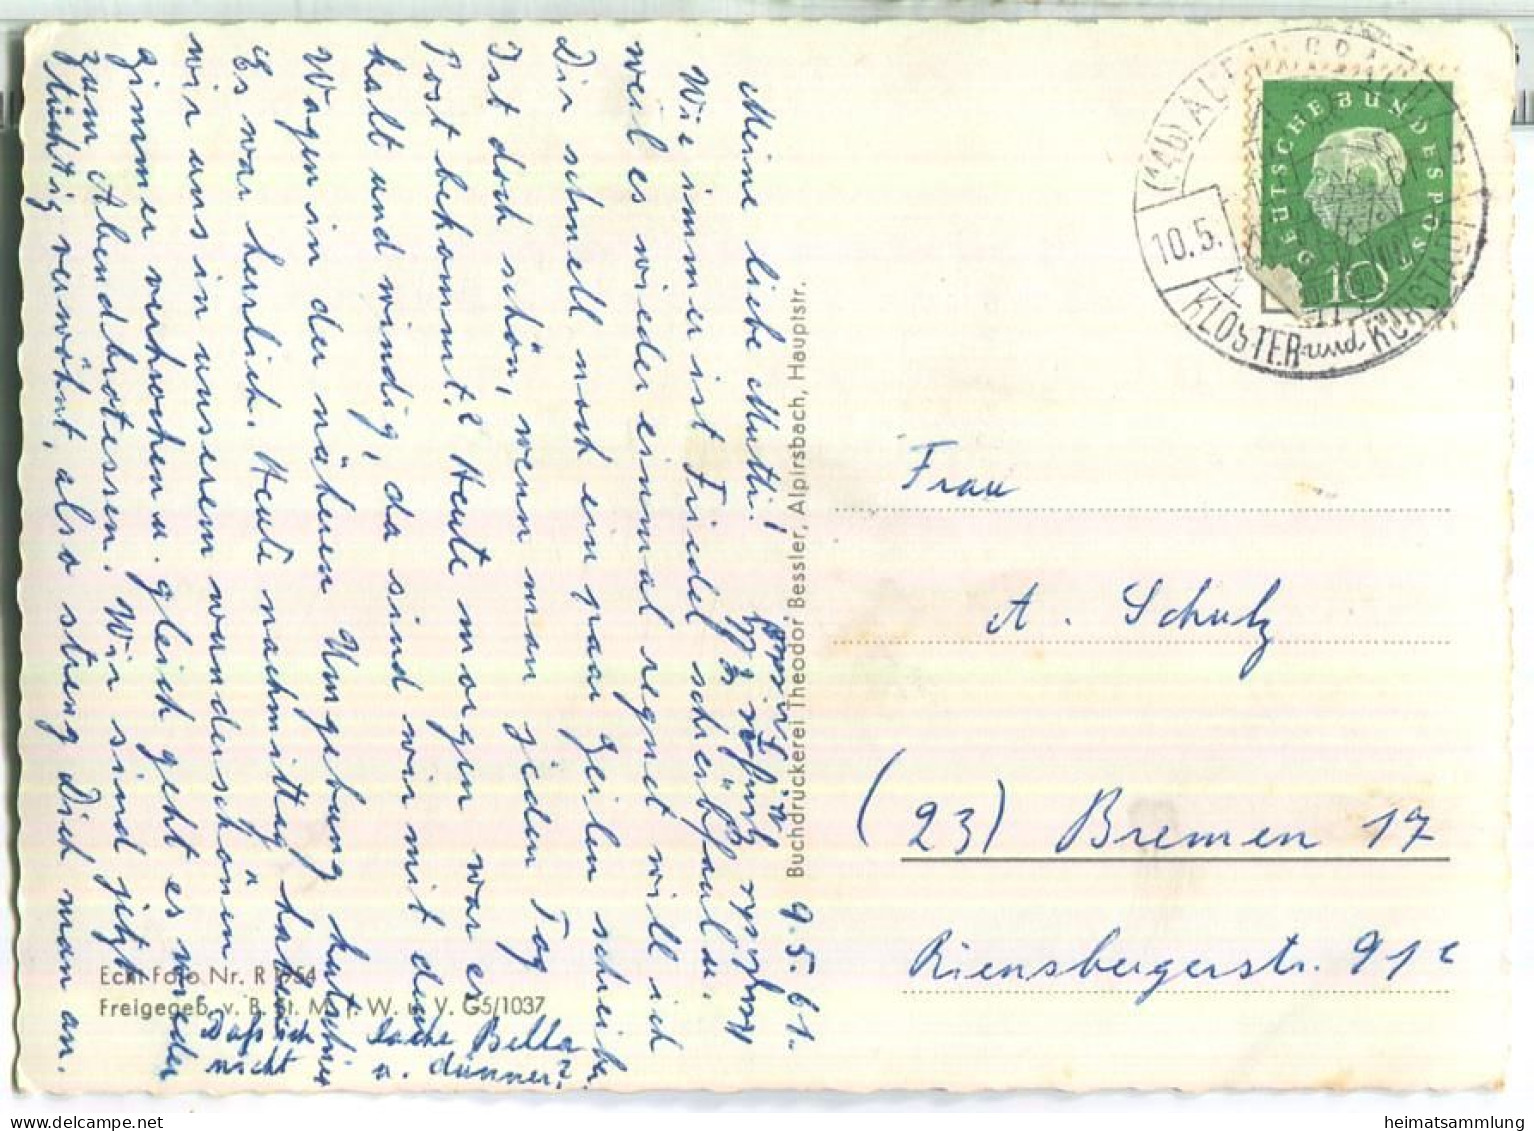 9.5.61.
Meine liebe Mutti!
Wie immer ist Friedel schreibfaul u.
weil es wieder einmal regnet will ich
Dir schnell noch ein paar Zeilen schreiben.
Ist doch schön, wenn man jeden Tag
Post bekommt? Heute morgen war es
kalt und windig, da sind wir mit dem
Wagen in der nähen Umgebung kutschiert
Es war herrlich. Heute nachmittag
wir uns in unserem wunderschonen
zimmer verkrochen u. gleich geht es wieder
zum Abendbrotessen. Wir sind jetzt
süchtig verwöhnt, also streng Dich man an.
Daß ich
nicht
lache Bella
u. dünner?
Echt Foto Nr. R
Freigegeb. v. B. St. M. f. W. u. V. G5/1037
Buchdruckerei Theodor Bessler, Alpirsbach, Hauptstr.
(14b) ALPIRSBACH
10.5.
KLOSTER und
DEUTSCHE BUNDESPOST
10
Frau
A. Schulz
(23) Bremen 17
Riensbergerstr. 91c
heimatsammlung.de